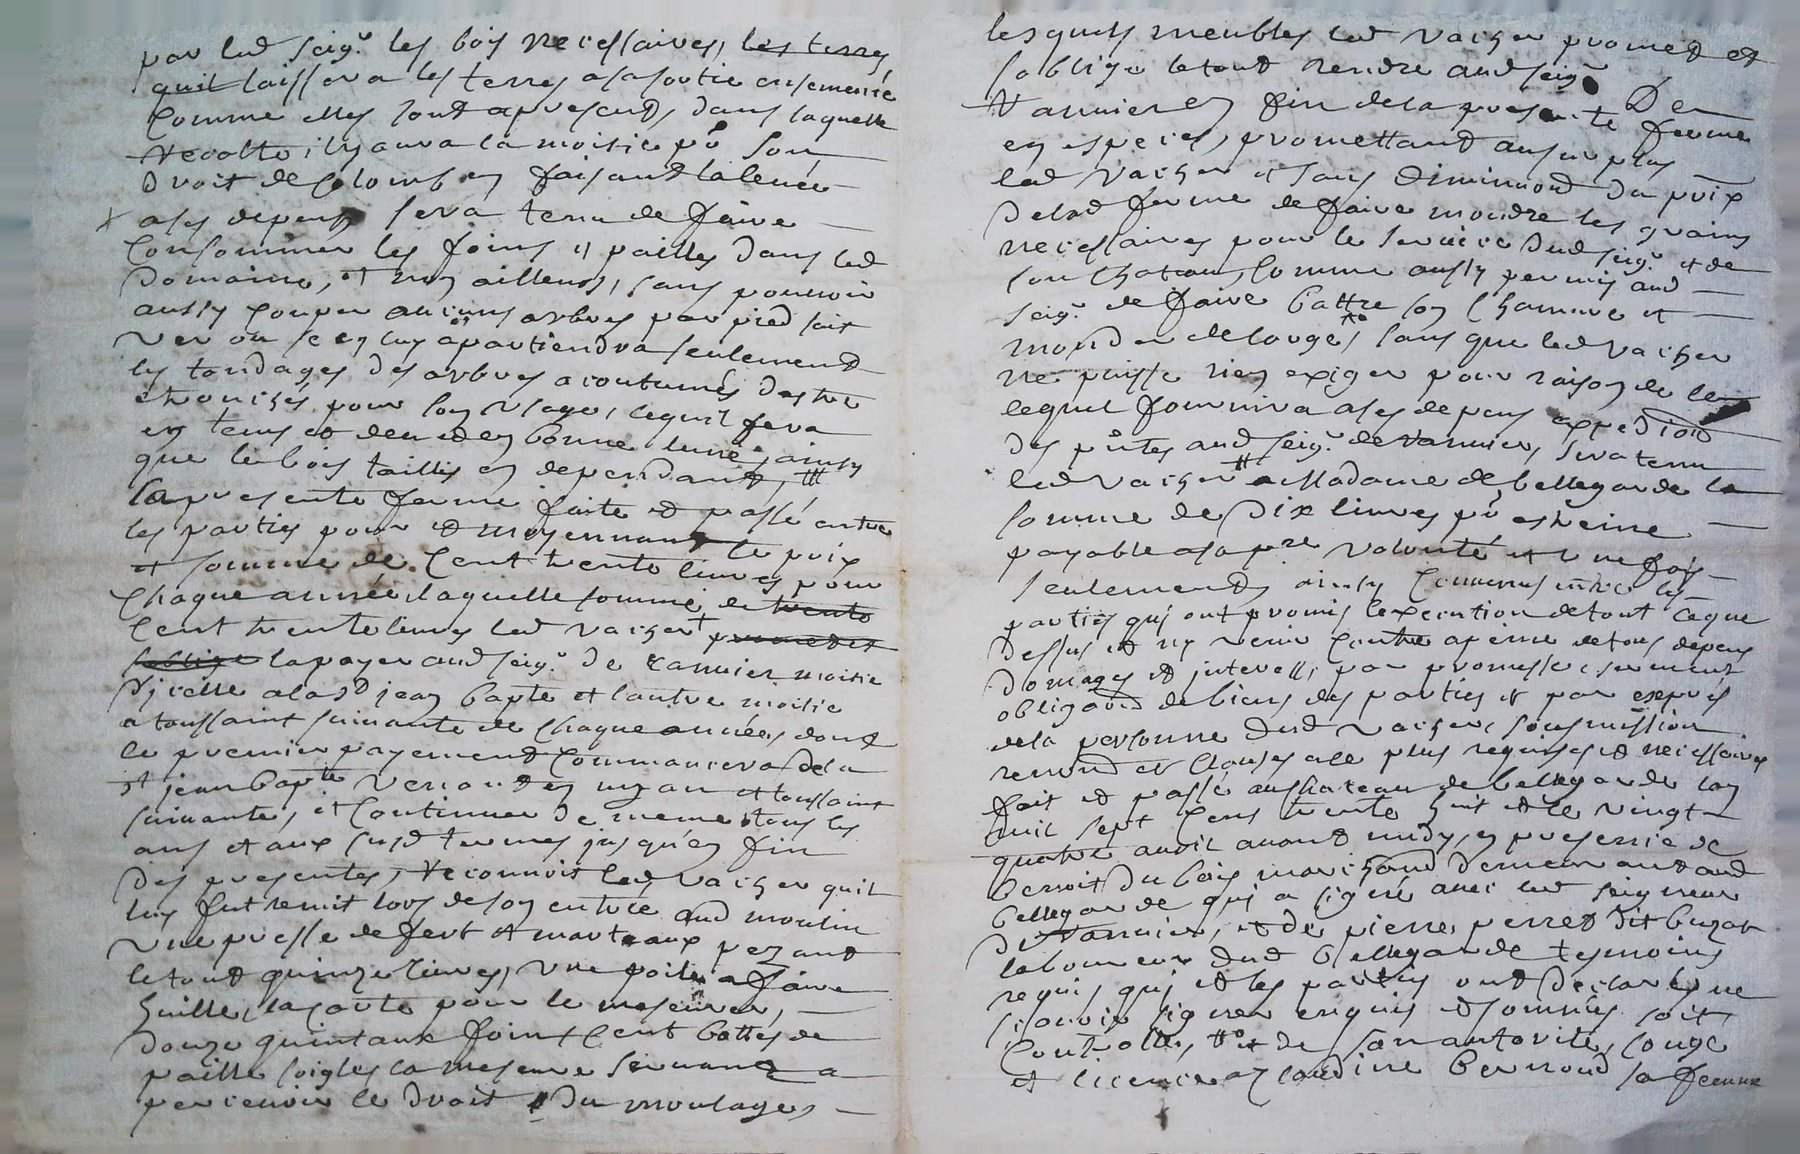 par led seigr les bois necessaires, les terres
quil laissera les terres a sa sortie ensemencé
comme elles sont apresent, dans laquelle
recolte il y aura la moitie pr son
droit de colom en faisant la levée
x a ses depens sera tenu de faire
consommer les foins et pailles dans led
domaine, et non ailleurs, sans pouvoir
aussy couper aucuns arbres par pied soit
ver ou sec luy apartiendra seulement
les tondages des arbres acoutumés destre
pour son usage, lequel fera
en tems et deu et en bonne lune, ainsy
que le bois taillis en dependant, #
la presente ferme faite et passé entre
les parties pour et moyennant le prix
et somme de cent trente livres pour
chaque année, laquelle somme de trente
cent trente livres led vacher + promet et
soblige la payer aud seigr de vannier moitie
dicelle a la st jean bapte et lautre moitie
a toussaint suivante de chaque année, dont
le premier payement commancera de la
st jean bapte venant en un an et toussaint
suivante, et continuer de meme tous les
ans et aux susd termes jusqu'en fin
des presentes, reconnoit led vacher quil
luy fut remit lors de son entrée aud moulin
une presse de fert et marteaux pezant
le tout quinze livres, une poile a faire
huille, la coute pour le mesurer,
douze quintaux foin, cent bottes de
paille soigles la mesure servant a
percevoir le droit du moulages
lesquels meubles led vacher promet et
soblige le tout rendre aud seigr De
Vannier en fin de la presente ferme
en especes, promettant en plus
led vacher et sans diminuond du prix
delad ferme de faire moudre les grains
necessaires pour le service dud seigr et de
son chateau, comme aussy permis aud
seigr de faire battre son chanvre et
monder de lorge, sans que led vacher
ne puisse rien exiger pour raison de ce
lequel fournira a ses depens expediond
des pntes aud seigr de vannier, sera tenu
led vacher # a Madame de bellegarde la
somme de dix livres pr estreine
payable a sa pre volonté et une fois
seulement, ainsy convenus entre les
parties qui ont promis lexecution de tout ceque
dessus et ny venir contre a peine de tous depens
domages et interests, par promesse, serment
obligaond de biens des parties et par exprès
de la personne dud vacher, sousmission
renond et clauses a ce plus requises et necessaires
fait et passé au chateau de bellegarde lan
mil sept cens trente huit et le vingt
quatre avril avant midy, en presence de
benoit du bois marchand demeurant aud
bellegarde qui a signé avec led seigneur
de Vannier, et de pierre perret dit buzat
laboureur dud bellegarde tesmoins
requis, qui et les parties ont declaré ne
sçavoir signer enquis et sommés soit
controllé, # et de son autorité, congé
et licence claudine bernoud sa femme